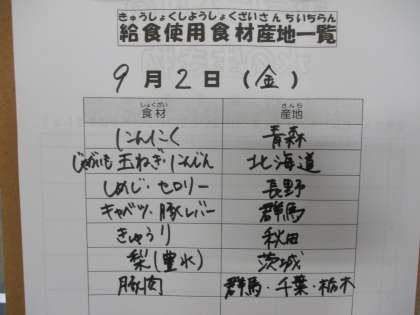 きゅうしょくしようしょくざいさんちいちらん
給食使用食材産地一覧
9月2日(金)
しょくざい さんち
食材 産地
にんにく 青森
じゃがいも 玉ねぎ・にんじん 北海道
しめじ・セロリー 長野
キャベツ・豚レバー 群馬
きゅうり 秋田
梨(豊水) 茨城
豚肉 群馬・千葉・栃木